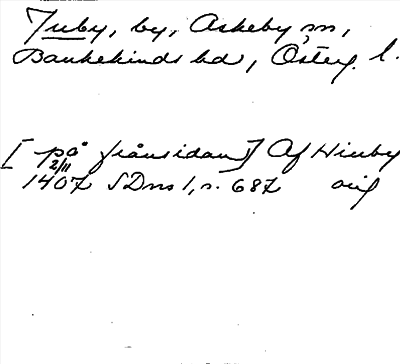 Juby, by, Askeby sn,
Bankekinds hd, Österg. l.
[på frånsidan] Af Hiuby
2/11
1407 SDns 1, s. 687 orig